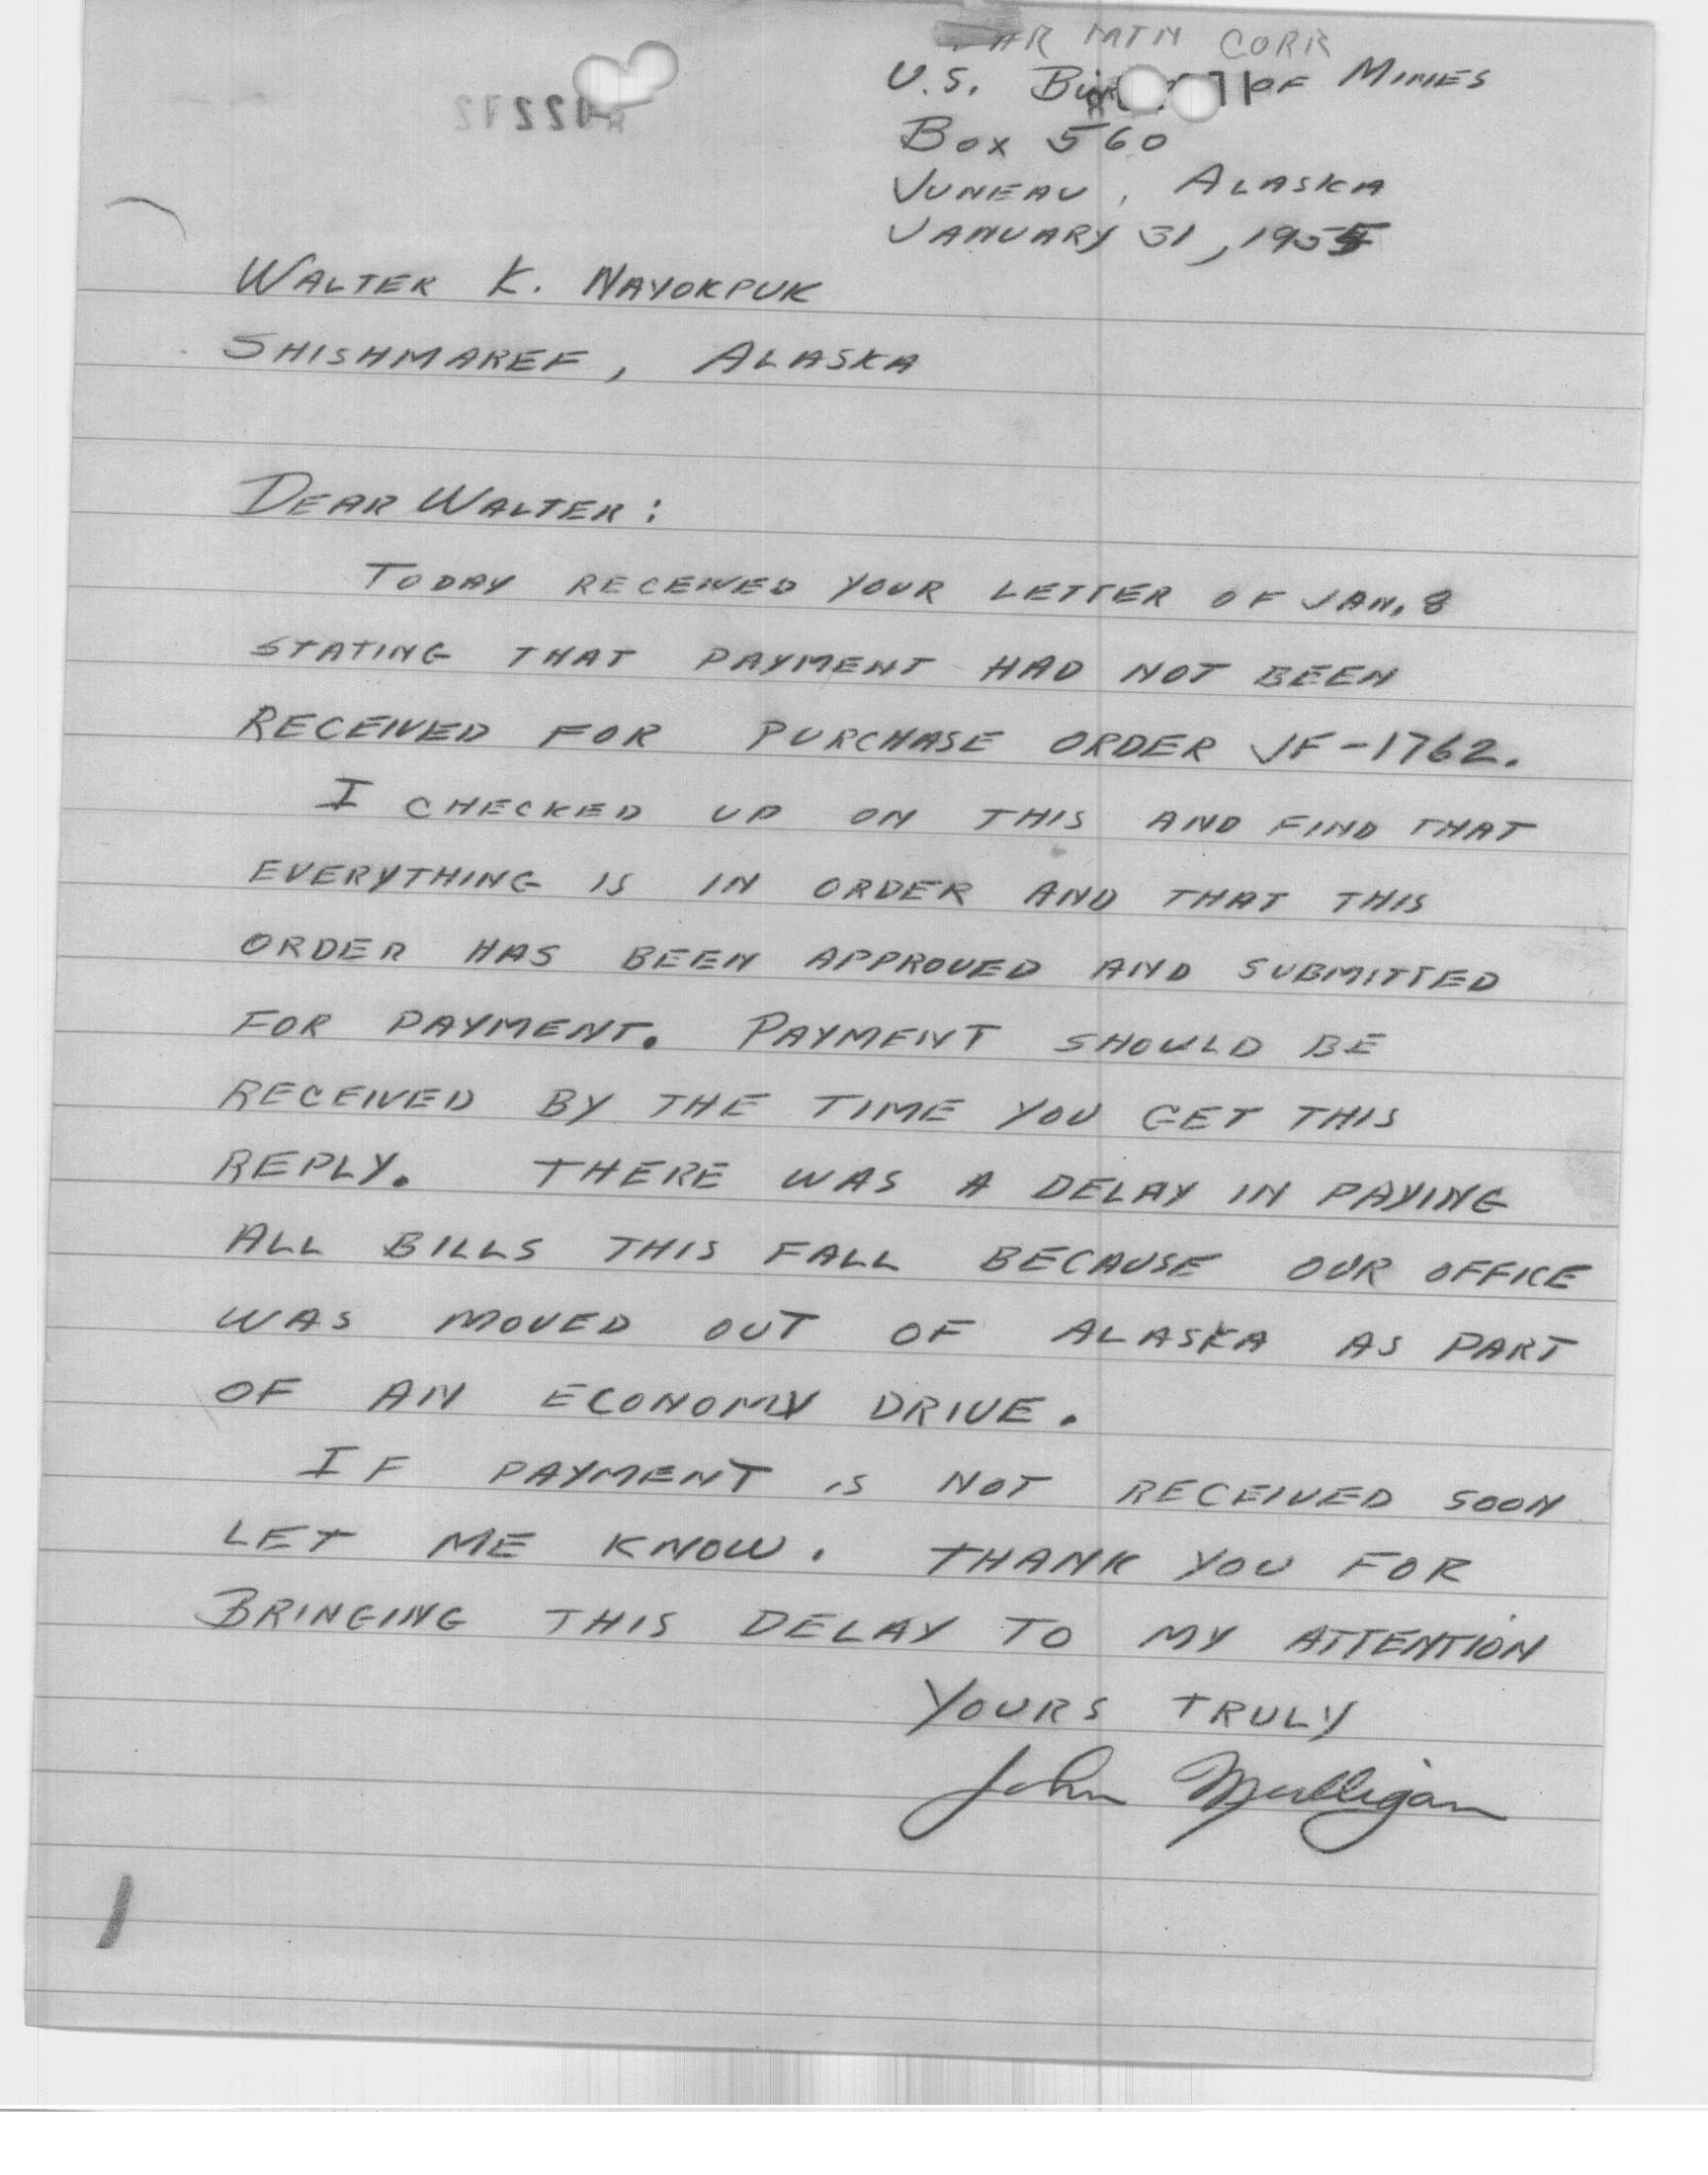 MTN CORR
U.S. OF MINES
BOX 560
JUNEAU, ALASKA
JANUARY 31, 1955
WALTER K. NAYOKPUK
SHISHMAREF, ALASKA
DEAR WALTER:
TODAY RECEIVED YOUR LETTER OF JAN. 8
STATING THAT PAYMENT HAD NOT BEEN
RECEIVED FOR PURCHASE ORDER JF-1762.
I CHECKED UP ON THIS AND FIND THAT
EVERYTHING IS IN ORDER AND THAT THIS
ORDER HAS BEEN APPROVED AND SUBMITTED
FOR PAYMENT. PAYMENT SHOULD BE
RECEIVED BY THE TIME YOU GET THIS
REPLY. THERE WAS A DELAY IN PAYING
ALL BILLS THIS FALL BECAUSE OUR OFFICE
WAS MOVED OUT OF ALASKA AS PART
OF AN ECONOMY DRIVE.
IF PAYMENT IS NOT RECEIVED SOON
LET ME KNOW. THANK YOU FOR
BRINGING THIS DELAY TO MY ATTENTION
YOURS TRULY
John Mulligan